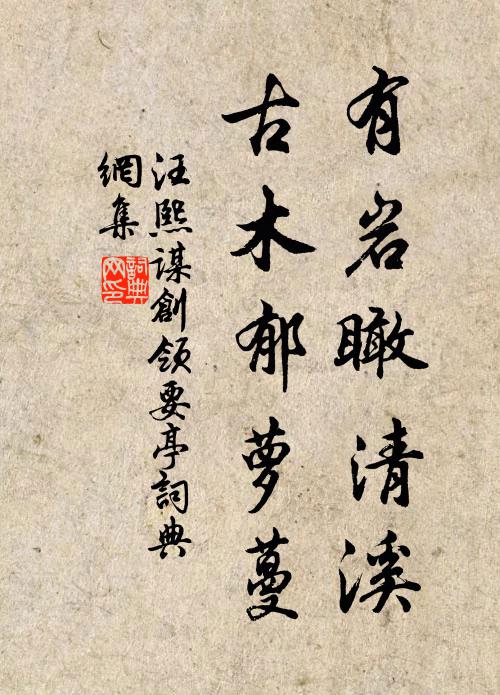 有岩瞰清溪
古木郁萝蔓
汪熙谋創領要亭詞典
網集
詞典
网印